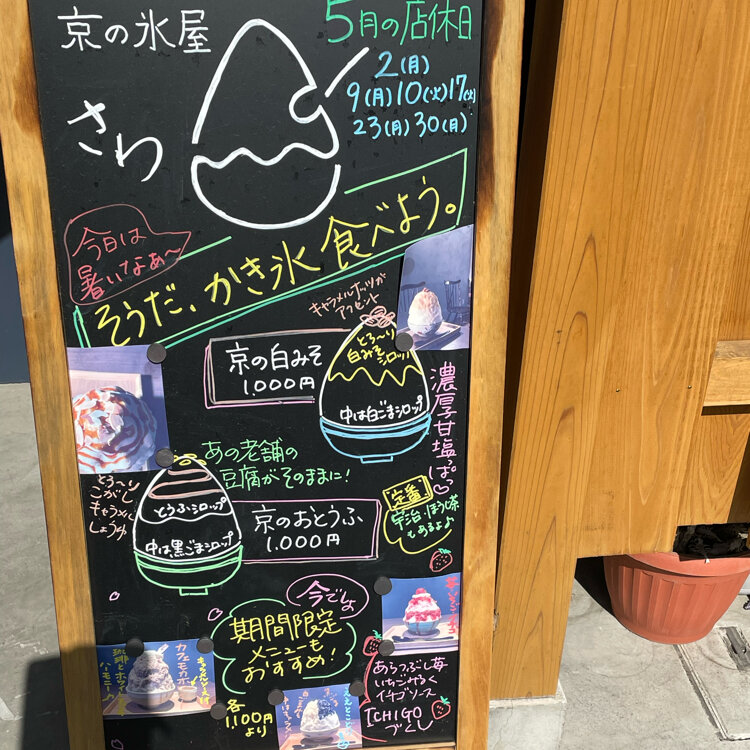 京の氷屋
さわ
5月の店休日
2(月)
9(月)10(火)17(火)
23(月)30(月)
今日は
暑いなぁ〜
そうだ、かき氷 食べよう。
キャラメルナッツが
アクセント
とろ〜り
白みそ
シロップ
京の白みそ
1,000円
中は白ごまシロップ
濃厚甘塩っぱ
あの老舗の
豆腐がそのままに!
とろ〜り
こがし
キャラメル
しょうゆ
とうふシロップ
中は黒ごまシロップ
京のおとうふ
1,000円
定番
宇治・ほうじ茶
もあるよ♪
今でしょ
期間限定
メニューも
おすすめ!
各
1,100円
より
カフェモカ
珈琲と
ハーモニー
あらつぶし苺
いちごみるく
イチゴソース
ICHIGO
づくし